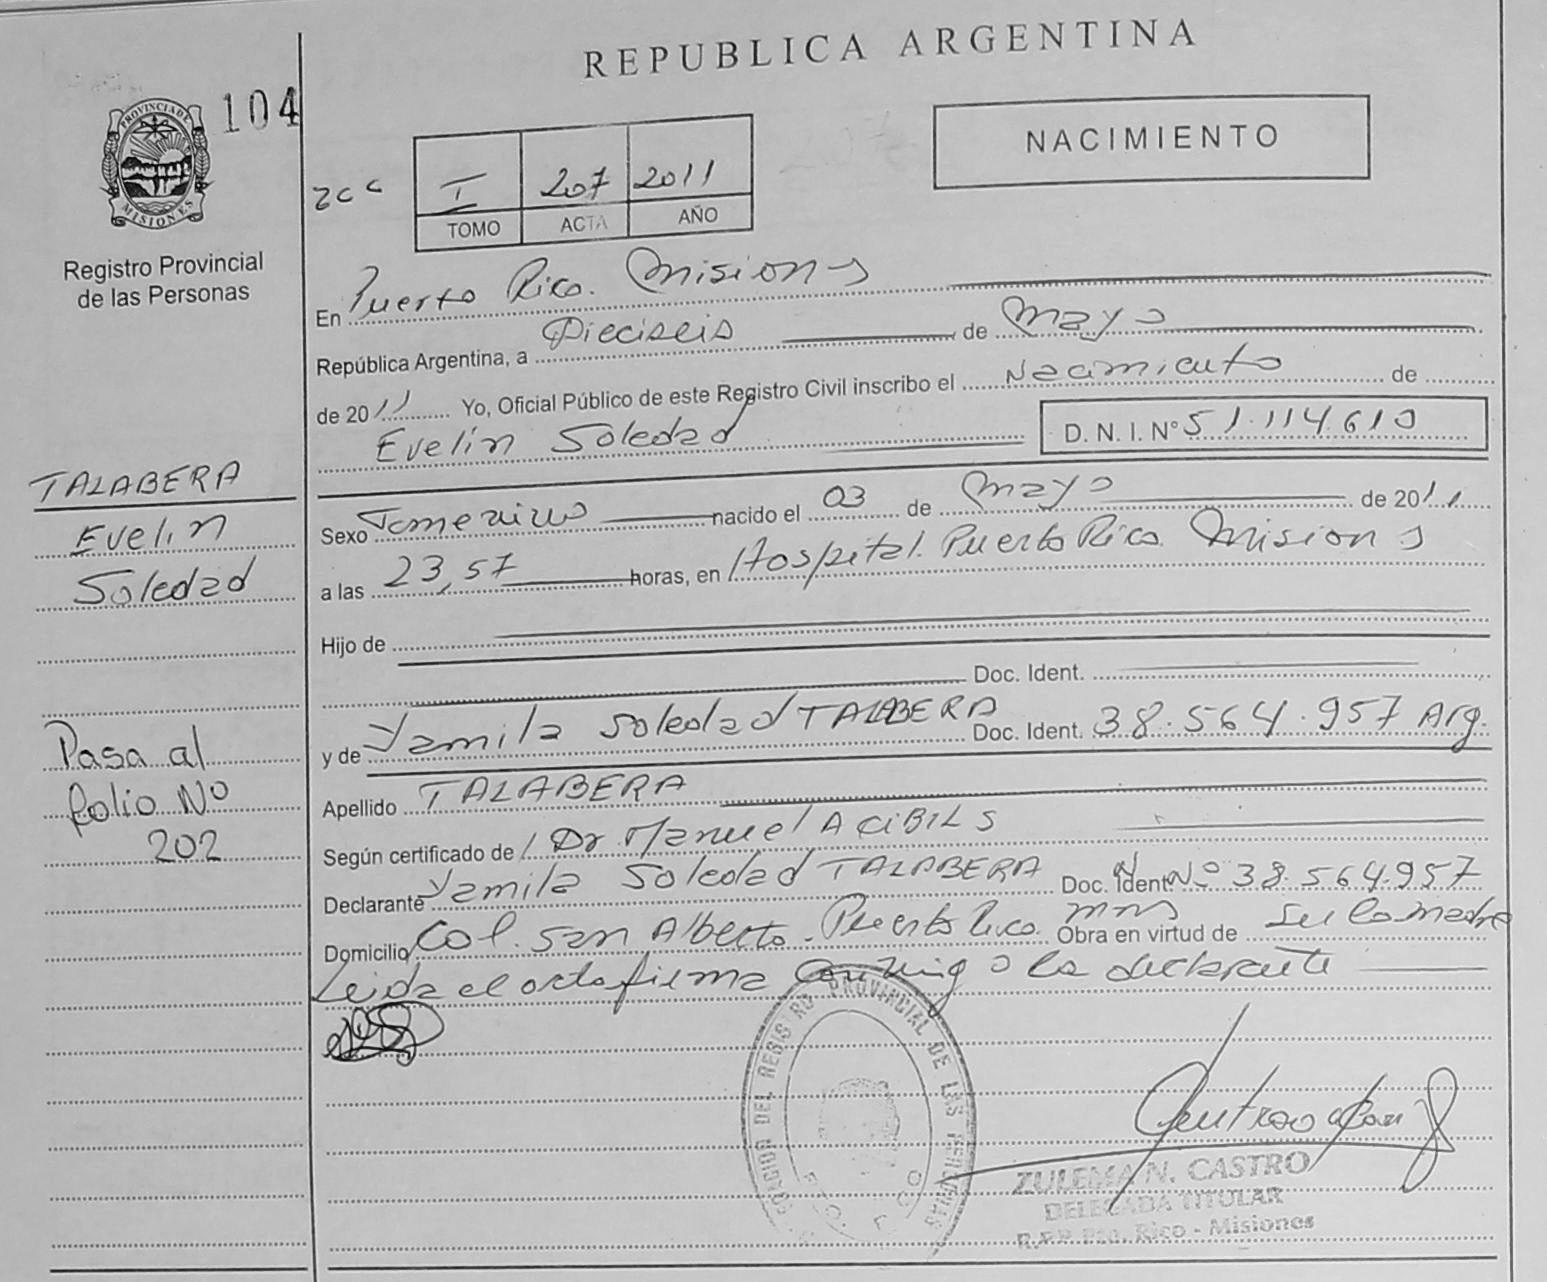 REPUBLICA ARGENTINA
104
PROVINCIA DE
MISIONES
Registro Provincial
de las Personas
NACIMIENTO
I 207 2011
TOMO ACTA AÑO
En Puerto Rico. Misiones
República Argentina, a Dieciseis de Mayo
de 2011 Yo, Oficial Público de este Registro Civil inscribo el Nacimiento de
Evelin Soledad D. N. I. Nº 51.114.610
TALABERA
Evelin
Soledad
Sexo Femenino nacido el 03 de Mayo de 2011
a las 23,57 horas, en Hospital. Puerto Rico. Misiones
Hijo de
Doc. Ident.
y de Yamila Soledad TALABERA Doc. Ident. 38.564.957 Arg.
Pasa al
folio Nº
202
Apellido TALABERA
Según certificado de Dr Manuel A CIBILS
Declarante Yamila Soledad TALABERA Doc. Ident Nº 38.564.957
Domicilio Col. San Alberto. Puerto Rico. Mns Obra en virtud de ser la madre
Leida el acta firma conmigo la declarante
REGISTRO PROVINCIAL DE LAS PERSONAS
ZULEMA N. CASTRO
DELEGADA TITULAR
R.P.P. Pto. Rico - Misiones